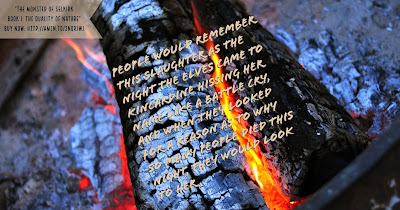 "THE MONSTER OF SELKIRK
BOOK I: THE DUALITY OF NATURE"
BUY NOW: HTTP://AMZN.TO/
PEOPLE WOULD REMEMBER
THIS SLAUGHTER AS THE
NIGHT THE ELVES CAME TO
KINCARDINE HISSING HER
NAME LIKE A BATTLE CRY,
AND WHEN THEY LOOKED
FOR A REASON AS TO WHY
SO MANY PEOPLE DIED THIS
NIGHT, THEY WOULD LOOK
TO HER.